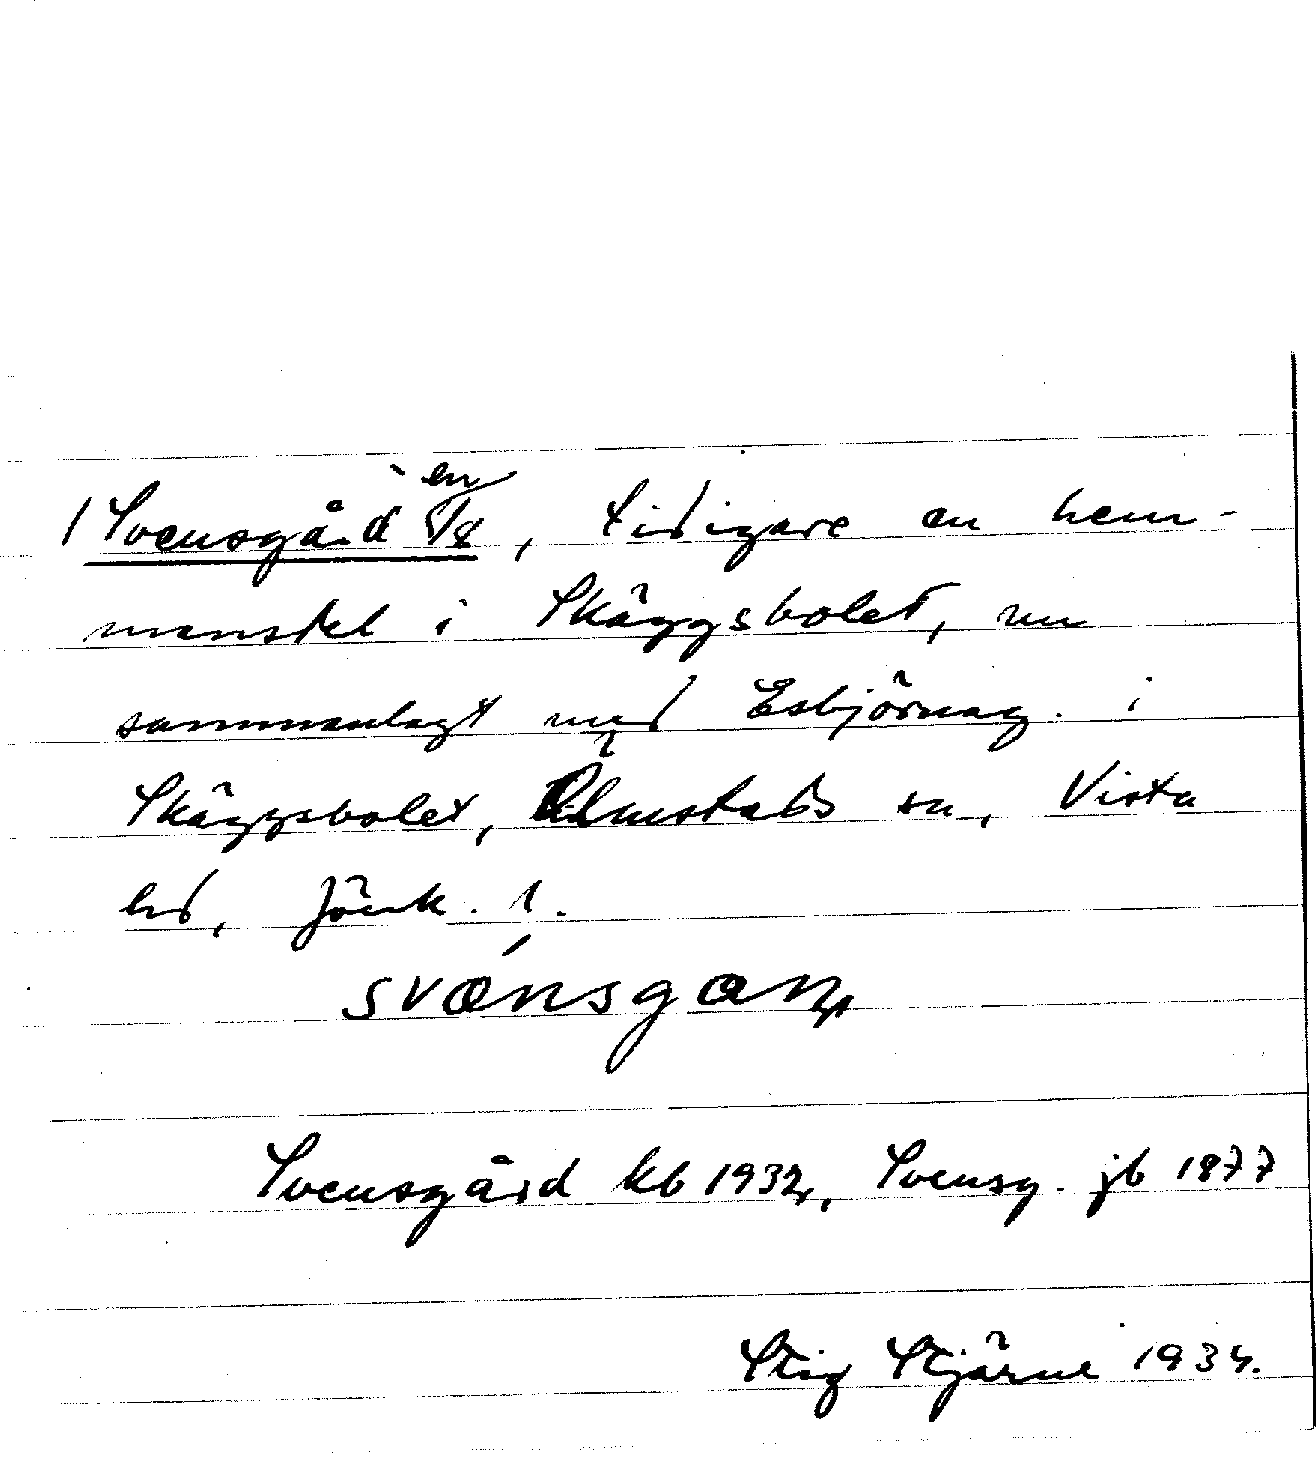 en
/ Svensgård 1/8, tidigare en hem-
mansdel i Skäggsbolet, nu
sammanlagt med Esbjörnag. i
Skäggsbolet, Ölmstads sn, Vista
hd, Jönk. l.
Svensgård kb 1932, Svensg. jb 1877
Stig Stjärne 1934.